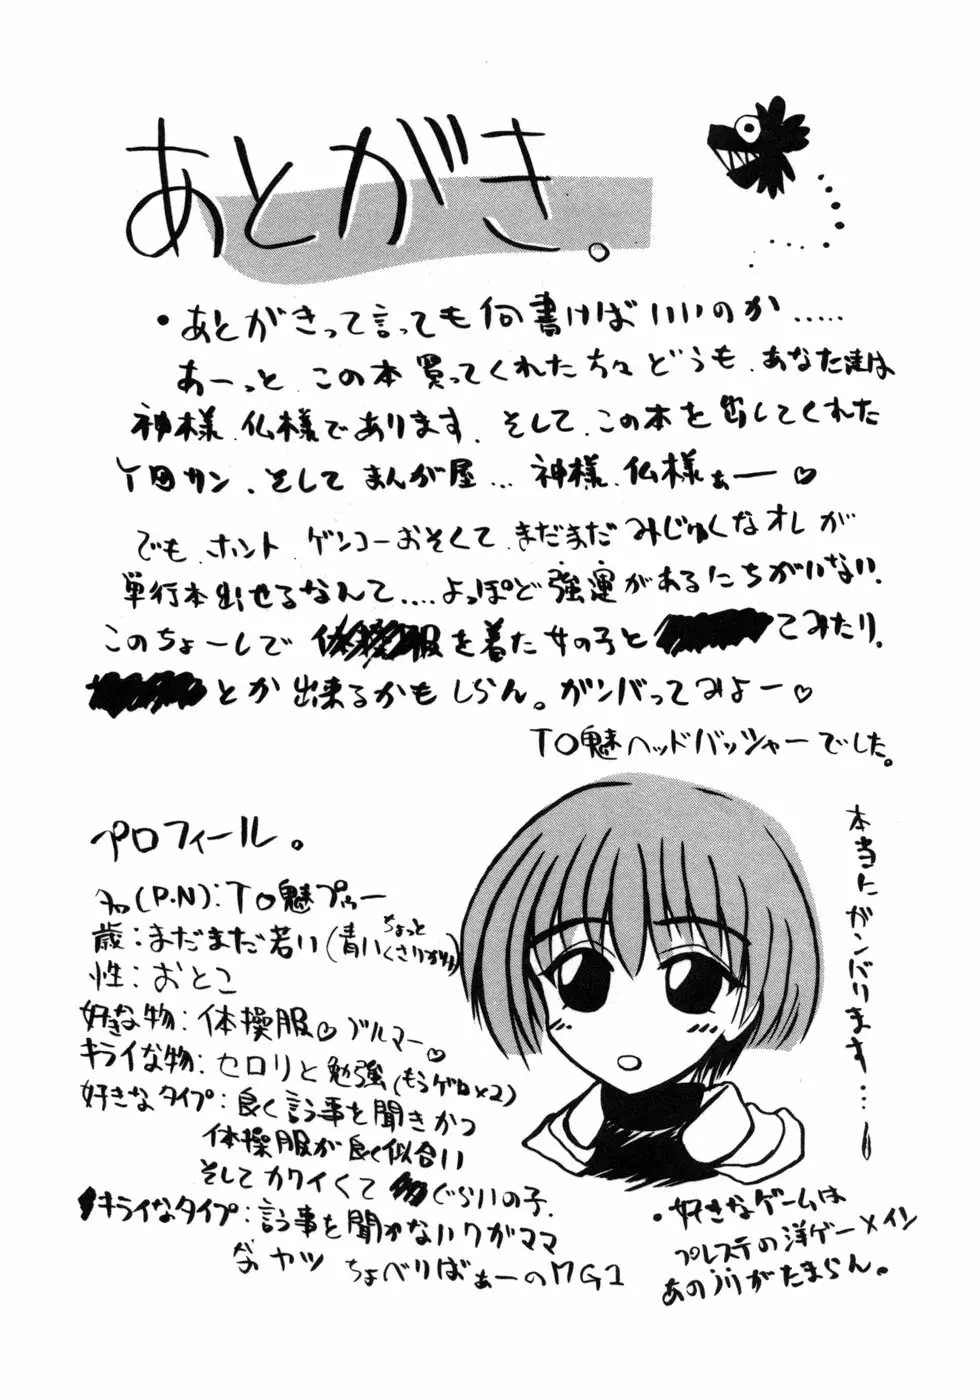 あとがき。
・あとがきって言っても何書けばいいのか.....
あーっと、この本買ってくれた方々どうも、あなた達は
神様、仏様であります、そして、この本を出してくれた
サン、そしてまんが屋...神様、仏様ぁー♡
でも、ホント ゲンコーおそくて、まだまだみじゅくなオレが
単行本出せるなんて....よっぽど強運があるにちがいない、
このちょーしで体操服を着た女の子と てみたり、
とか出来るかもしらん。ガンバってみよー♡
TO魅ヘッドバッシャーでした。
本当にガンバります...!
プロフィール。
名(P.N):TO魅プゥー
歳:まだまだ若い(青い ちょっとくさりかけ)
性:おとこ
好きな物:体操服♡ブルマー♡
キライな物:セロリと勉強(もうゲロ×2)
好きなタイプ:良く言う事を聞きかつ
体操服が良く似合い
そしてカワイくて ぐらいの子.
キライなタイプ:言う事を聞かないワガママ
なヤツ ちょべりばぁーの
・好きなゲームは
プレステの洋ゲーメイン
あのノリがたまらん。